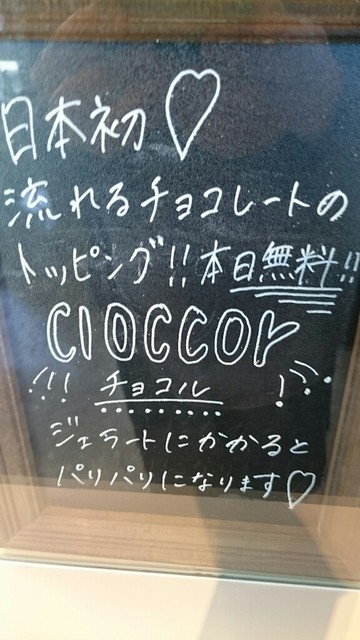 日本初♡
流れるチョコレートの
トッピング!!本日無料!!
CIOCCOR
チョコル
ジェラートにかかると
パリパリになります♡